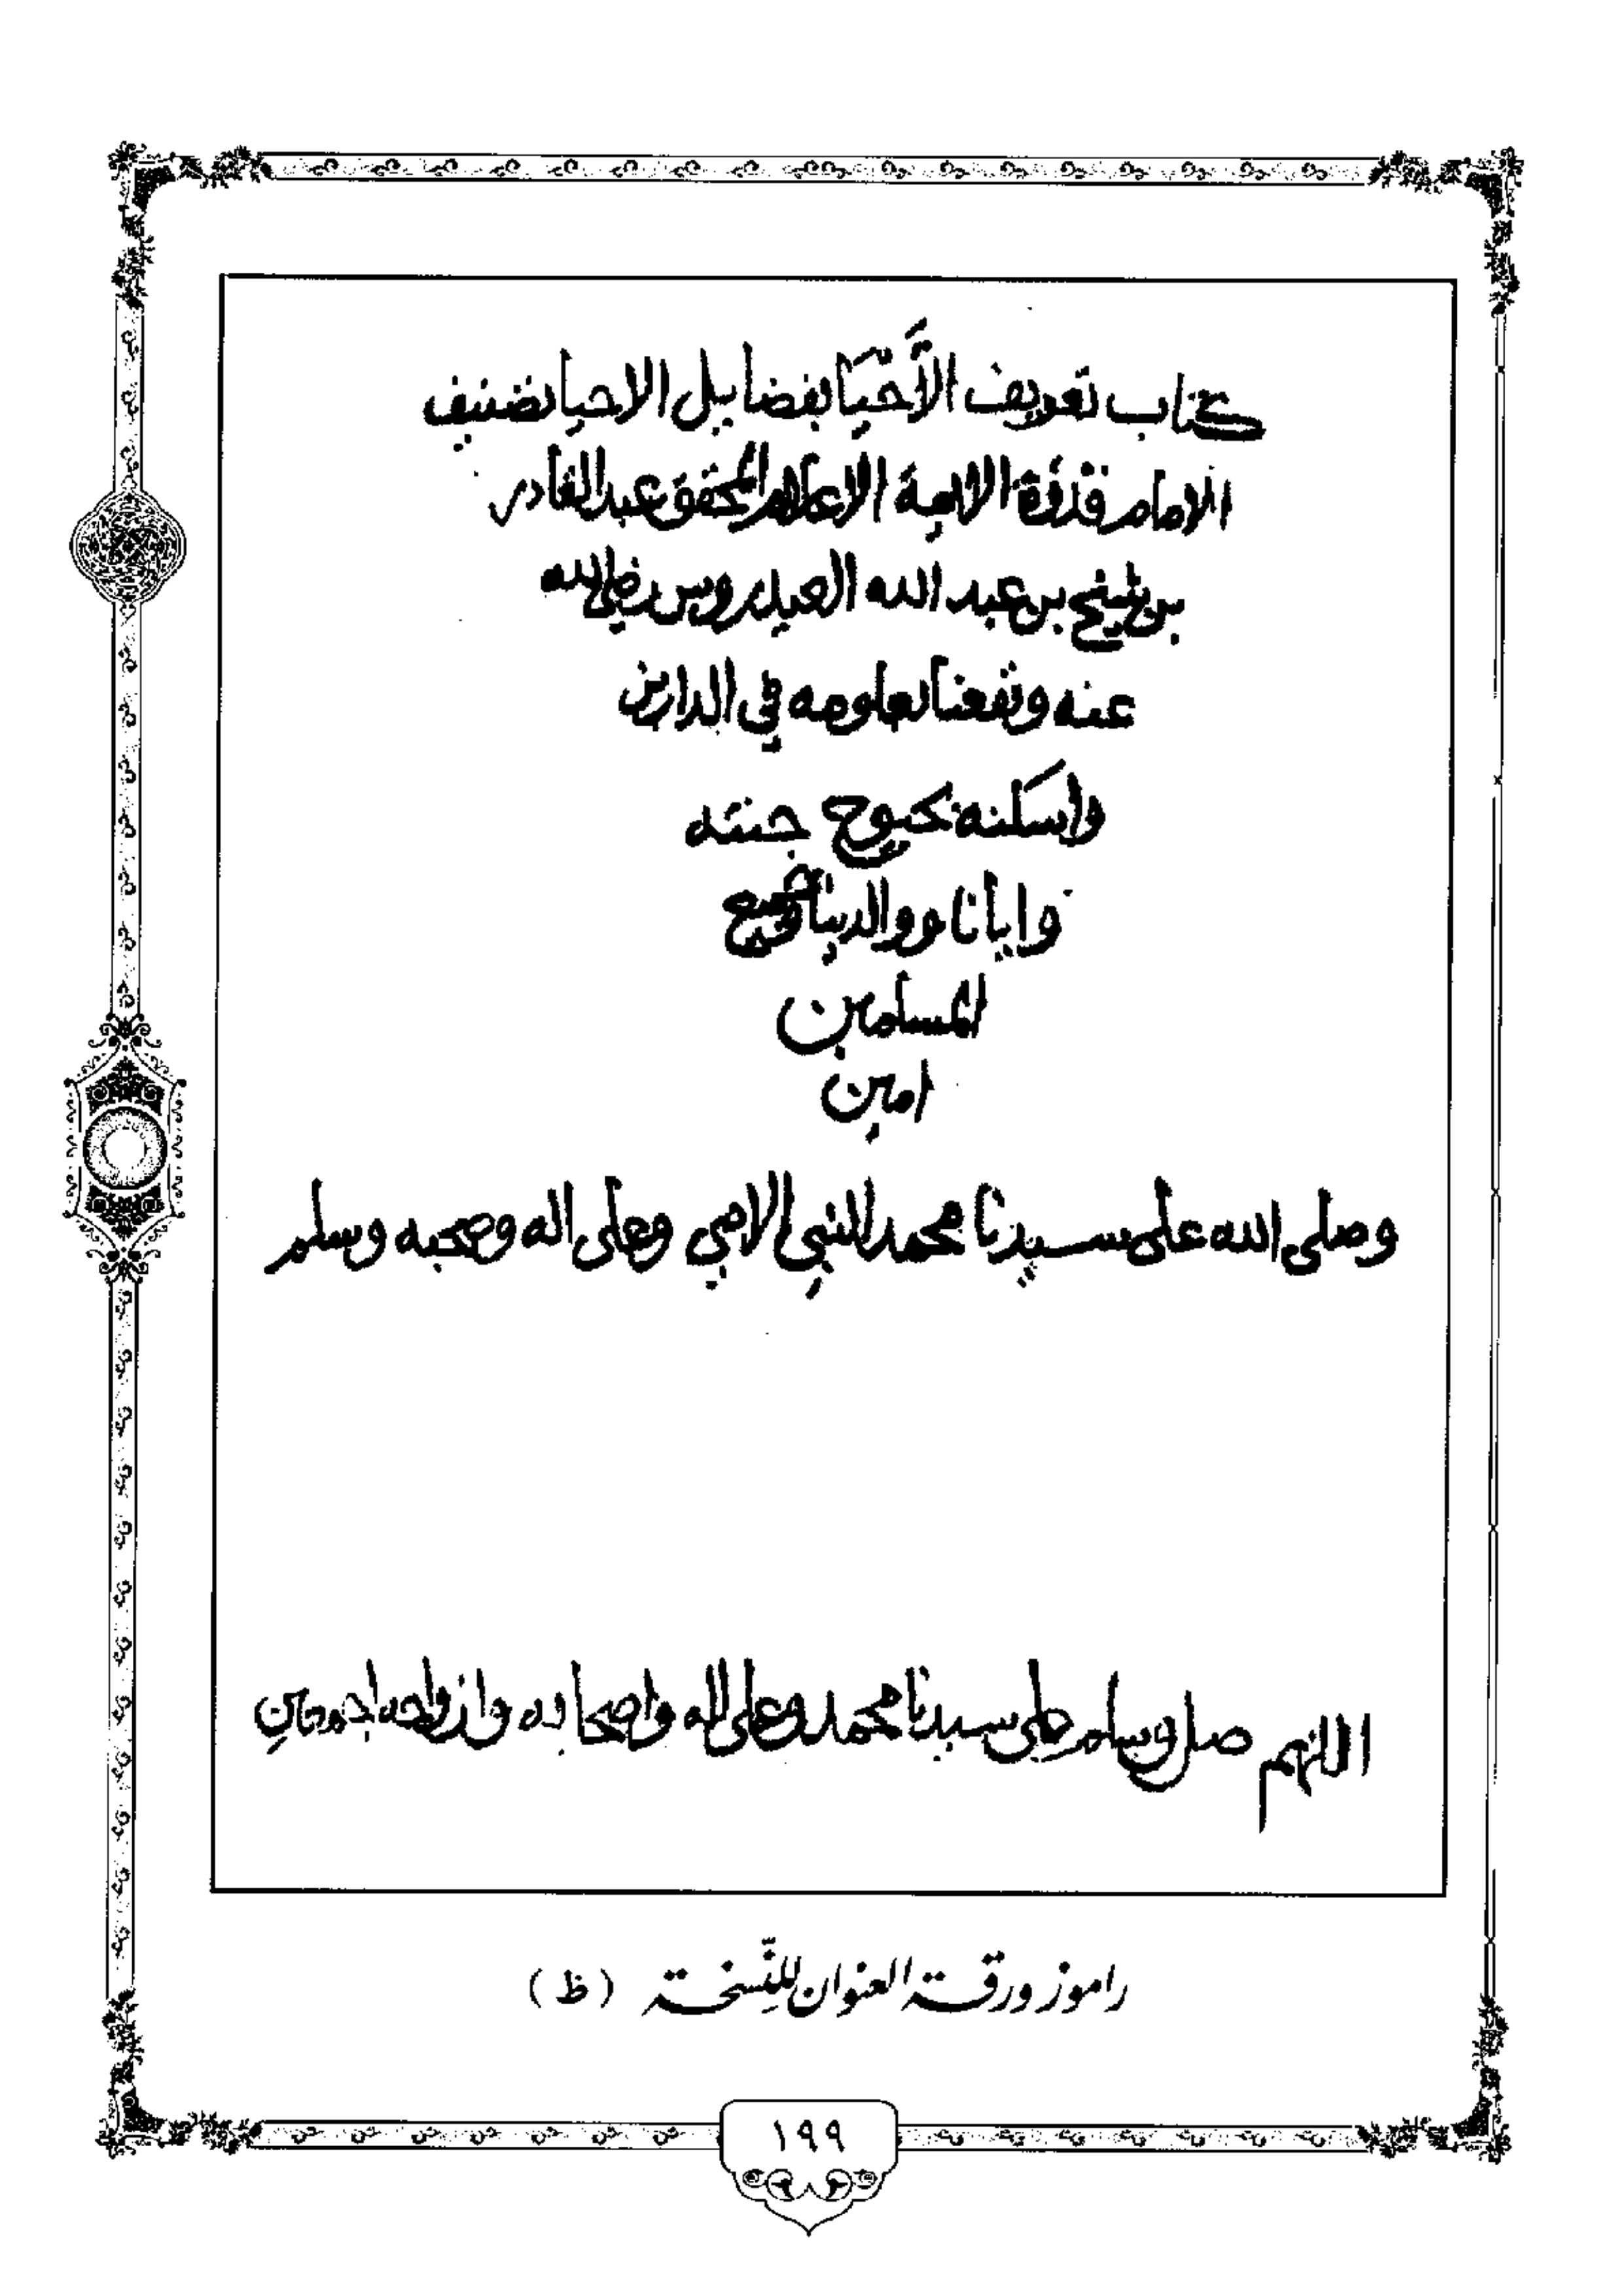 كتاب تعريف الأَحْيَا بفضايل الاحيا تصنيف
الامام قدوة الايمة الاعلام المحقق عبد القادر
بن شيخ بن عبد الله العيدروس رضي الله
عنه ونفعنا بعلومه في الدارين
وأسكنه بحبوح جنته
وايانا ووالدينا وجميع
المسلمين
امين
وصلى الله على سيدنا محمد النبي الامي وعلى اله وصحبه وسلم
اللهم صل وسلم على سيدنا محمد وعلى اله واصحابه وازواجه اجمعين
راموز ورقة العنوان للنّسخة (ظ)
١٩٩